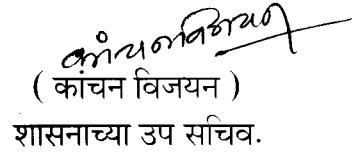 कांचन विजयन
( कांचन विजयन )
शासनाच्या उप सचिव.